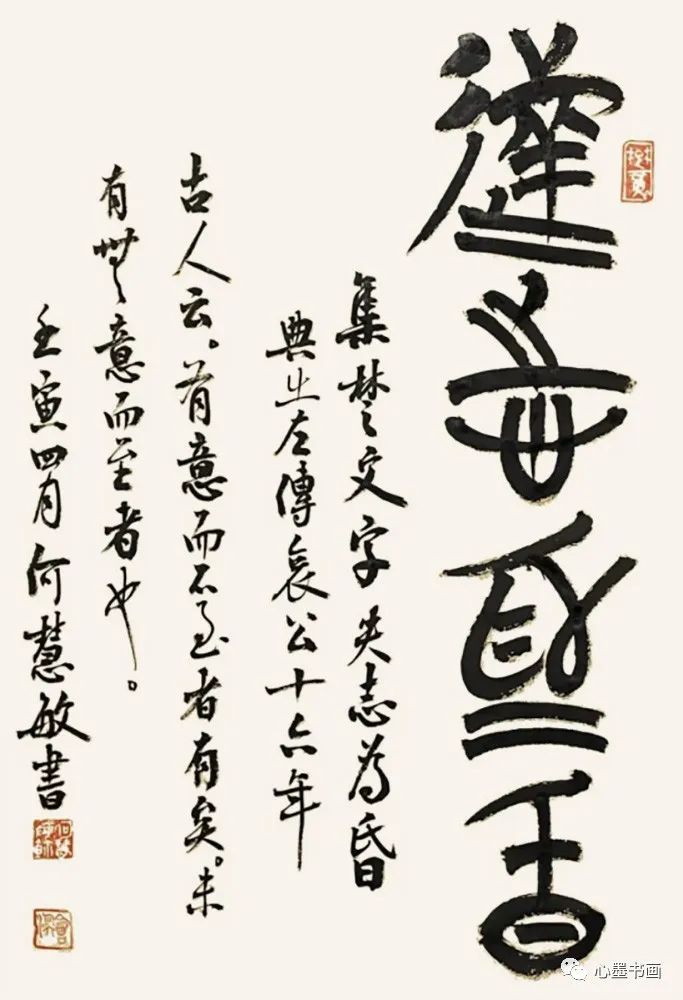 失志為昏
集楚文字失志為昏
典出左傳哀公十六年
古人云。有意而不至者有矣。未
有無意而至者也。
壬寅四月何慧敏書
心墨书画